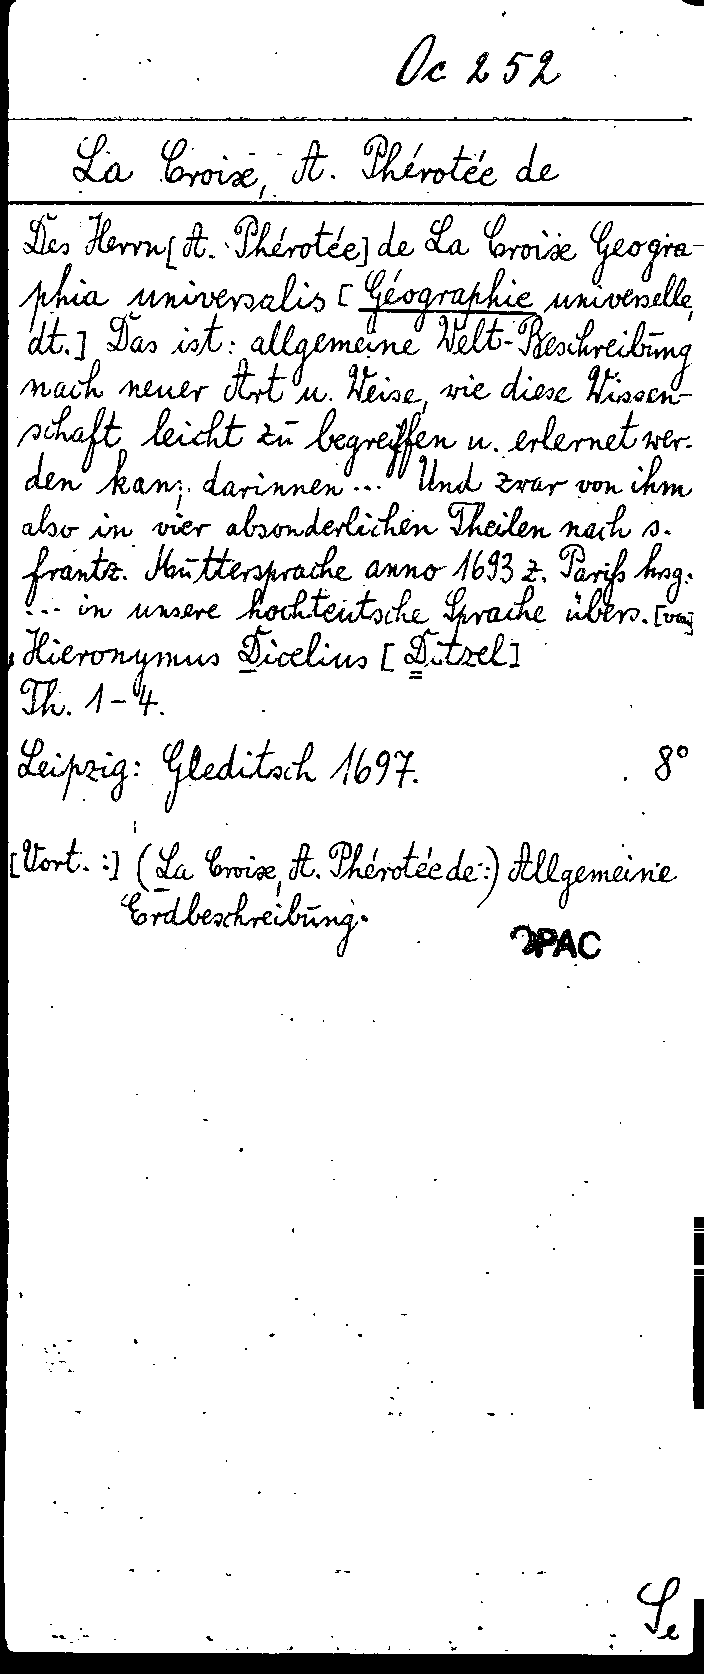 Oc 252
La Croix, A. Phérotée de
Des Herrn [A. Phérotée] de La Croix Geogra-
phia universalis [Géographie universelle,
dt.] Das ist: allgemeine Welt-Beschreibung
nach neuer Art u. Weise, wie diese Wissen-
schaft leicht zu begreiffen u. erlernet wer-
den kan; darinnen ... Und zwar von ihm
also in vier absonderlichen Theilen nach s.
frantz. Muttersprache anno 1693 z. Pariss hrsg.
... in unsere hochteutsche Sprache übers. [von]
Hieronymus Dicelius [Ditzel]
Th. 1-4.
Leipzig: Gleditsch 1697. 8°
[Vort. :] (La Croix, A. Phérotée de:) Allgemeine
Erdbeschreibung.
OPAC
Se